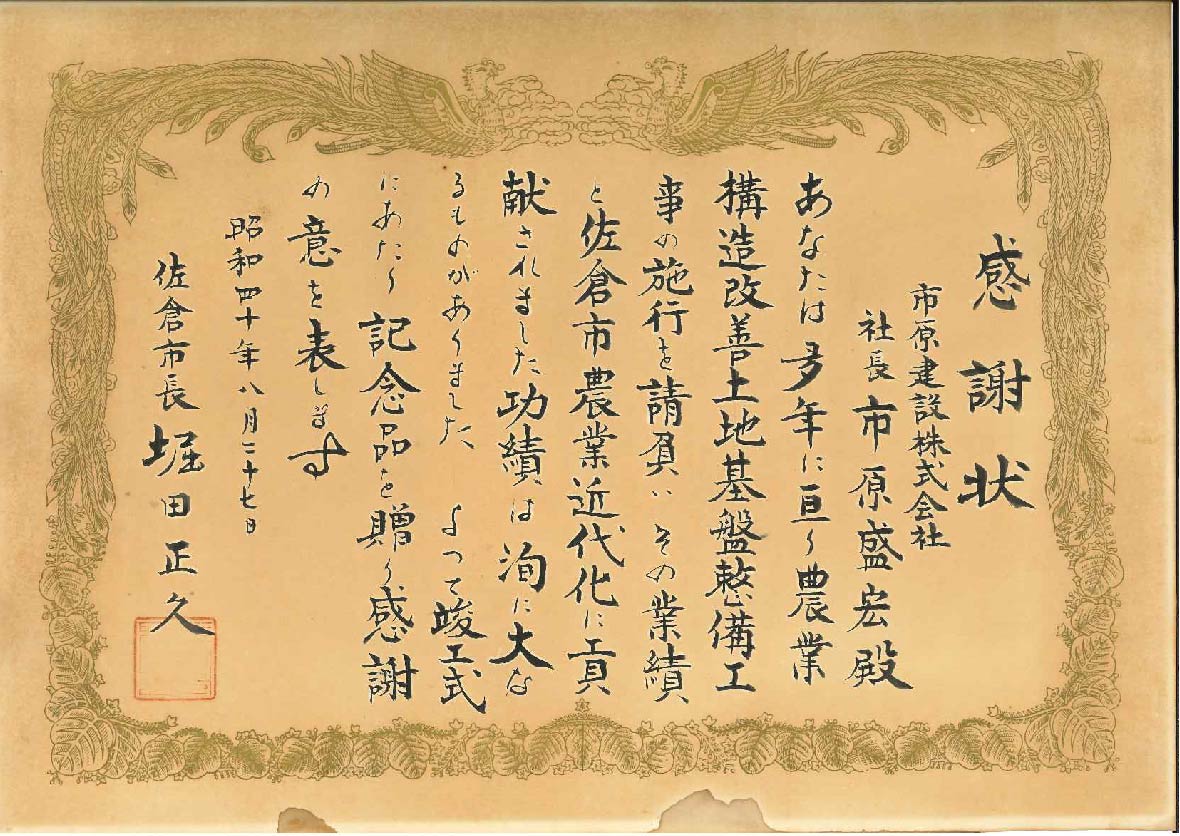 感謝状
市原建設株式会社
社長 市原盛宏殿
あなたは多年に亘り農業
構造改善土地基盤整備工
事の施行を請負いその業績
と佐倉市農業近代化に貢
献されました功績は洵に大な
るものがありました よつて竣工式
にあたり記念品を贈り感謝
の意を表します
昭和四十年八月二十七日
佐倉市長 堀田正久